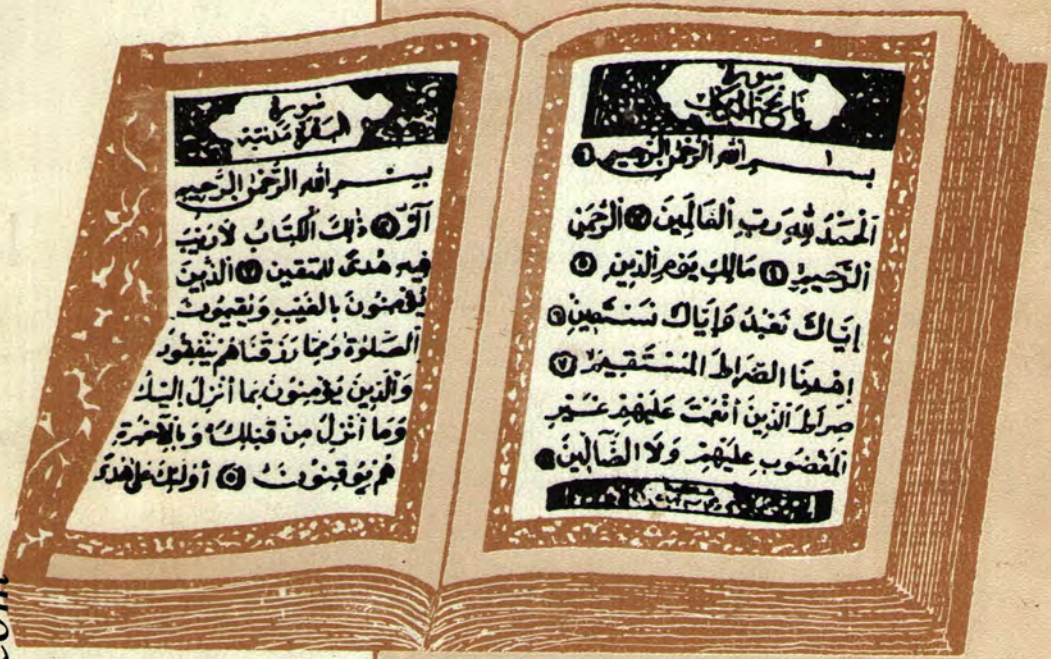 سورة
فاتحة الكتاب
١
بسم الله الرحمن الرحيم ١
اَلْحَمْدُ لِلّٰهِ رَبِّ الْعَالَمِينَ ٢ اَلرَّحْمٰنِ
الرَّحِيمِ مَالِكِ يَوْمِ الدِّينِ
إِيَّاكَ نَعْبُدُ وَإِيَّاكَ نَسْتَعِينُ
اِهْدِنَا الصِّرَاطَ الْمُسْتَقِيمَ ٧
صِرَاطَ الَّذِينَ أَنْعَمْتَ عَلَيْهِمْ غَيْرِ
الْمَغْضُوبِ عَلَيْهِمْ وَلَا الضَّالِّينَ
سورة
البقرة مدنية
بِسْمِ اللهِ الرَّحْمٰنِ الرَّحِيمِ
ذٰلِكَ الْكِتَابُ لَا رَيْبَ
فِيهِ هُدًى لِلْمُتَّقِينَ الَّذِينَ
يُؤْمِنُونَ بِالْغَيْبِ وَيُقِيمُونَ
الصَّلٰوةَ وَمِمَّا رَزَقْنَاهُمْ يُنْفِقُونَ
وَالَّذِينَ يُؤْمِنُونَ بِمَا أُنْزِلَ إِلَيْكَ
وَمَا أُنْزِلَ مِنْ قَبْلِكَ وَبِالْآخِرَةِ
هُمْ يُوقِنُونَ ٥ أُولٰئِكَ عَلٰى هُدًى
com